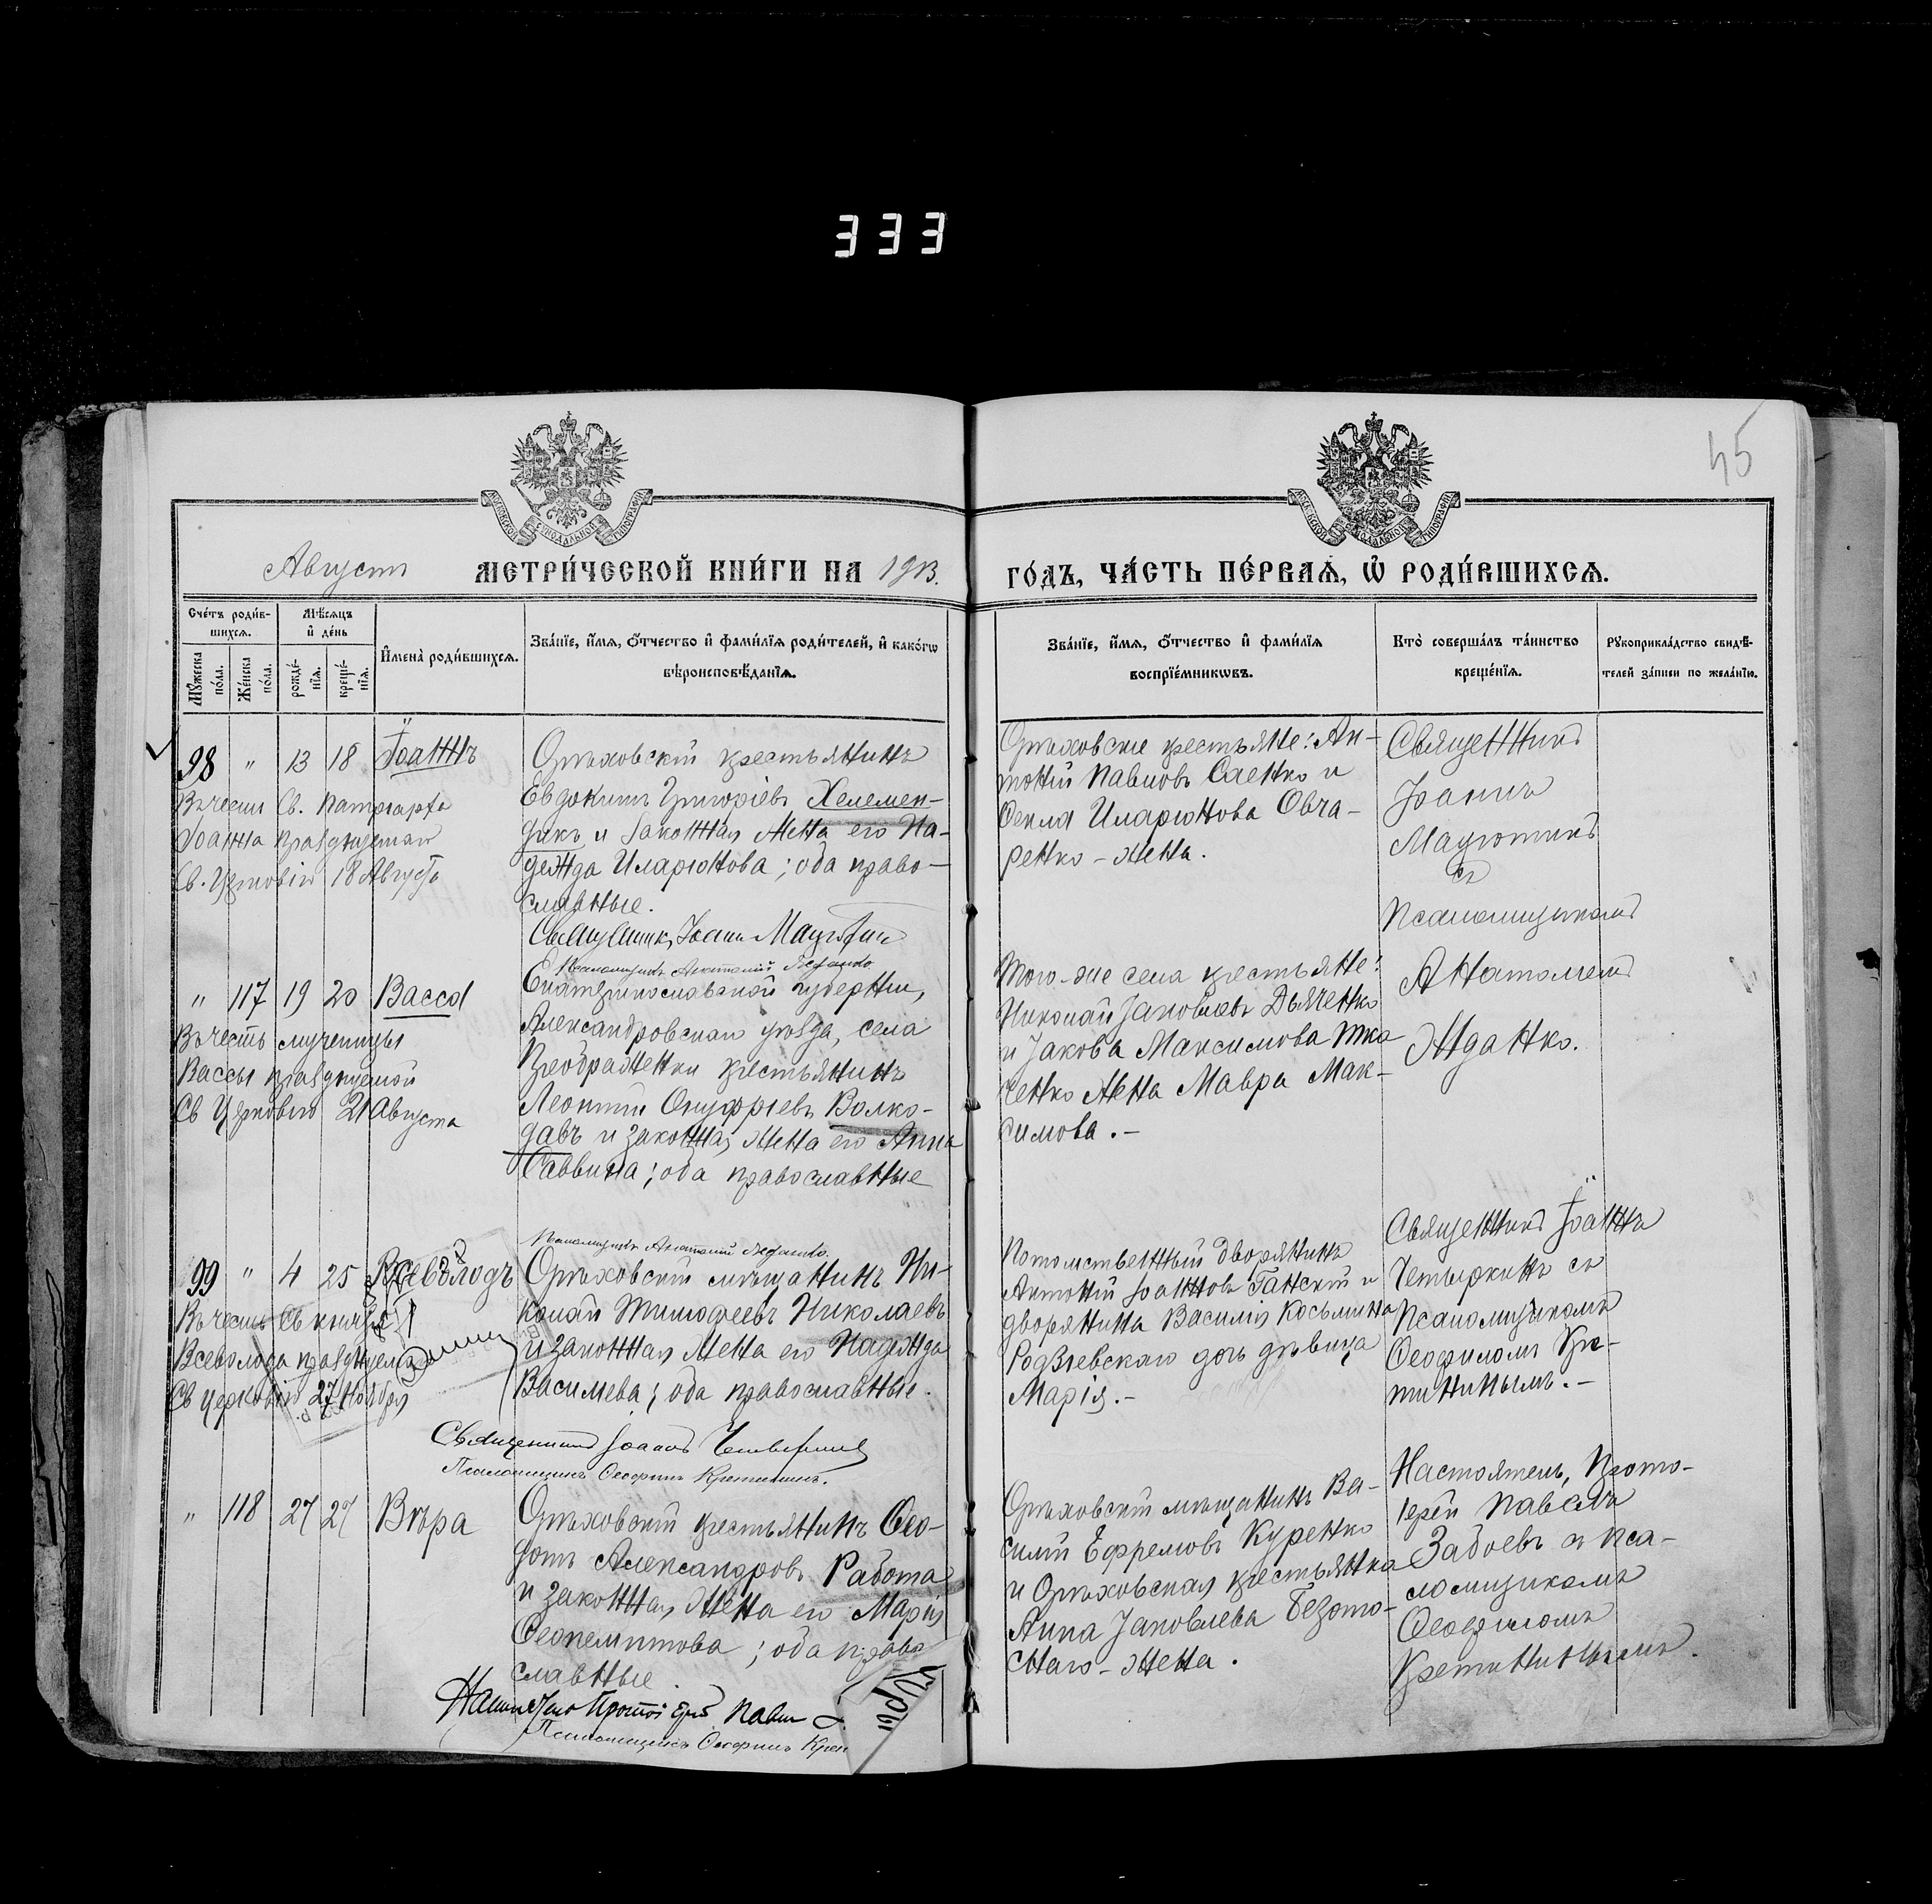 333
45
Августъ МЕТРИ́ЧЕСКОЙ КНИ́ГИ НА 1913. ГО́ДЪ, ЧА́СТЬ ПЕ́РВАѦ, Ѡ҆ РОДИ́ВШИХСѦ.
Сче́тъ роди́в-
шихсѧ.
Мѣ́сѧцъ
и҆ де́нь
Мꙋ́жеска по́ла.
Же́нска по́ла.
рожде́-
нїѧ.
креще́-
нїѧ.
И҆мена̀ роди́вшихсѧ.
Зва́нїе, и҆́мѧ, ѻ҆́тчество и҆ фами́лїѧ роди́телей, и҆ како́гѡ
вѣроисповѣ́данїѧ.
Зва́нїе, и҆́мѧ, ѻ҆́тчество и҆ фами́лїѧ
воспрїе́мникѡвъ.
Кто̀ соверша́лъ та́инство
креще́нїѧ.
Рꙋкоприкла́дство свидѣ́-
телей за́писи по жела́нїю.
98 " 13 18 Іоаннъ
Въ честь Св. патріарха
Іоанна празднуемаго
Св. Церковію 18 Августа
Орѣховскій крестьянинъ
Евдокимъ Григоріевъ Хелемен-
дикъ и законная жена его На-
дежда Иларіонова; оба право-
славные.
Священникъ Іоаннъ
Псаломщикъ Анатолій Жданко
Орѣховские крестьяне: Ан-
тоній Павловъ Саенко и
Фекла Иларіонова Овча-
ренко - жена.
Священникъ
Іоаннъ
съ
Псаломщикомъ
Анатоліемъ
Жданко.
" 117 19 20 Васса
Въ честь мученицы
Вассы празднуемой
Св Церковію 21 Августа
Екатеринославской губерніи,
Александровскаго уѣзда, села
Преображенки крестьянинъ
Леонтій Онуфріевъ Волко-
давъ и законная жена его Анна
Саввина; оба православные
Псаломщикъ Анатолій Жданко.
Того-же села крестьяне:
Николай Іаковлевъ Дьяченко
и Іакова Максимова Тка
ченко жена Мавра Мак-
симова.-
99 " 4 25 Всеволодъ
Въ честь Св князя
Всеволода празднуемаго
Св Церковію 27 Ноября
Орѣховскій мѣщанинъ Ни-
колай Тимофеевъ Николаевъ
и законная жена его Надежда
Василіева; оба православные.
Священникъ Іоаннъ Четыркинъ
Псаломщикъ Ѳеофилъ Кретининъ.
Потомственный дворянинъ
Антоній Іоанновъ Ганскій и
дворянина Василія Косьмина
Родзіевскаго дочь дѣвица
Марія.-
Священникъ Іоаннъ
Четыркинъ съ
Псаломщикомъ
Ѳеофиломъ Кре-
тининымъ.-
" 118 27 27 Вѣра
Орѣховскій крестьянинъ Ѳео-
дотъ Александровъ Работа
и законная жена его Марія
Ѳеопемптова; оба право
славные
Настоятель Протоіерей Павелъ
Псаломщикъ Ѳеофилъ Крет
Орѣховскій мѣщанинъ Ва-
силій Ефремовъ Куренко
и Орѣховская крестьянка
Анна Іаковлева Безото-
снаго - жена.
Настоятель, Прото-
іерей Павелъ
Забоевъ съ Пса-
ломщикомъ
Ѳеофиломъ
Кретининымъ.